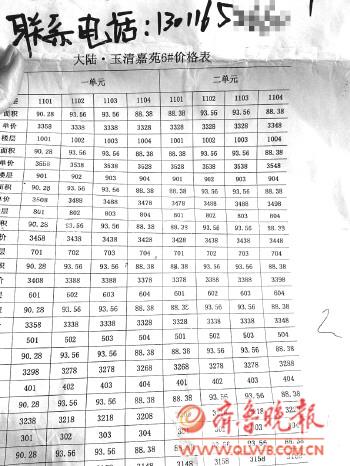 联系电话:1301165
大陆·玉清嘉苑6#价格表
一单元 二单元
层 1101 1102 1103 1104 1101 1102 1103 1104
面积 90.28 93.56 93.56 88.38 88.38 93.56 93.56 88.38
单价 3358 3338 3338 3328 3328 3328 3328 3348
楼层 1001 1002 1003 1004 1001 1002 1003 1004
面积 90.28 93.56 93.56 88.38 88.38 93.56 93.56 88.38
单价 3558 3538 3538 3528 3528 3538 3538 3548
楼层 901 902 903 904 901 902 903 904
面积 90.28 93.56 93.56 88.38 88.38 93.56 93.56 88.38
价 3508 3488 3488 3478 3478 3488 3488 3498
层 801 802 803 804 801 802 803 804
积 90.28 93.56 93.56 88.38 88.38 93.56 93.56 88.38
价 3458 3438 3438 3428 3428 3438 3438 3448
层 701 702 703 704 701 702 703 704
积 90.28 93.56 93.56 88.38 88.38 93.56 93.56 88.38
价 3408 3388 3388 3378 3378 3388 3388 3398
层 601 602 603 604 601 602 603 604
90.28 93.56 93.56 88.38 88.38 93.56 93.56 88.38
3358 3338 3338 3328 3328 3338 3338 3348
501 502 503 504 501 502 503 504
90.28 93.56 93.56 88.38 88.38 93.56 93.56 88.38
3298 3278 3278 3268 3268 3278 3278 3288
401 402 403 404 401 402 403 404
90.28 93.56 93.56 88.38 88.38 93.56 93.56 88.38
3238 3218 3218 3208
301 302 303 304
90.28 93.56 93.56 88.38
2
齐鲁晚报
WWW.QLWB.COM.CN